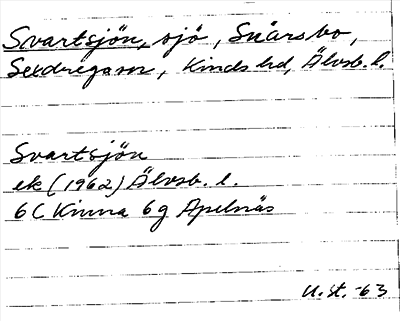 Svartsjön, sjö, Snårsbo,
Sexdrega sn, Kinds hd, Älvsb. l.
Svartsjön
ek (1962) Älvsb. l.
6 C Kinna 6 g Apelnäs
U. St. -63